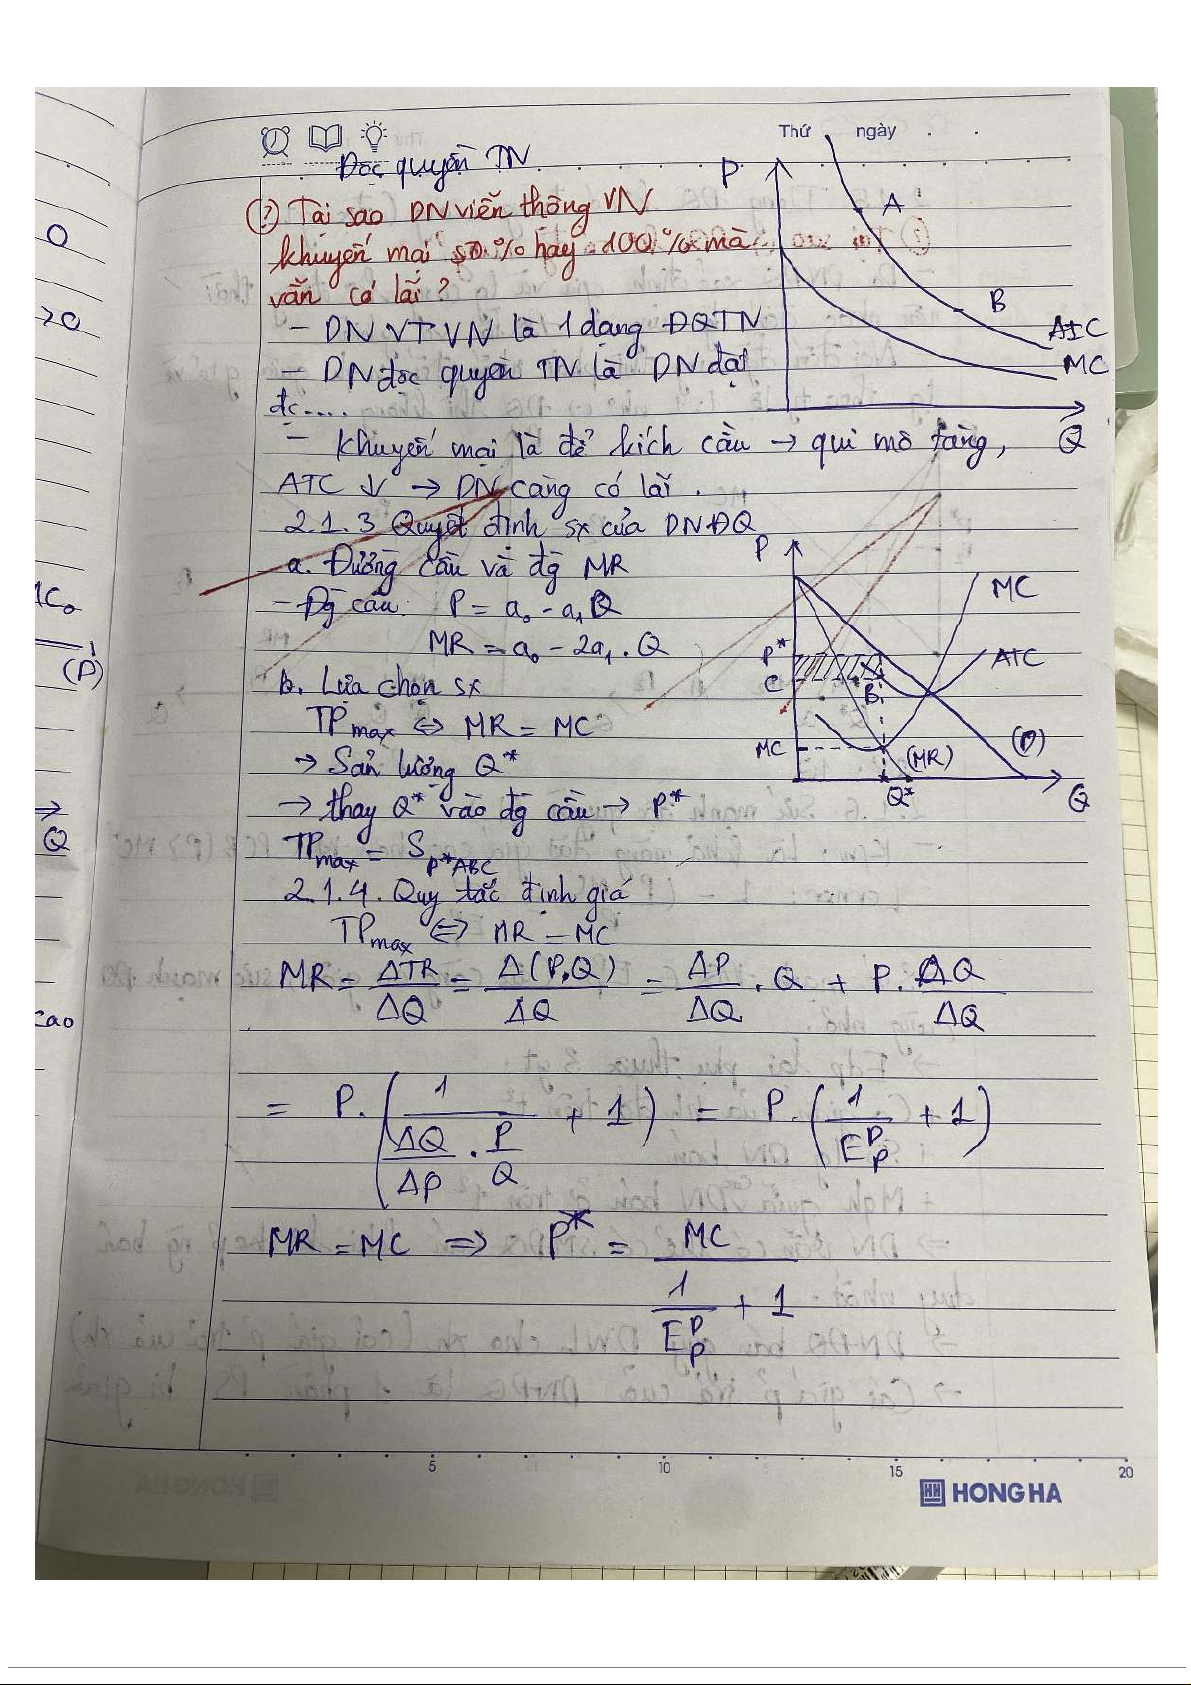 Thứ ngày . .
Độc quyền TN
(?) Tại sao DN viễn thông VN
khuyến mại 50% hay 100% mà
vẫn có lãi?
- DN VT VN là 1 dạng ĐQTN
- DN độc quyền TN là DN đạt
đc....
- Khuyến mại là để kích cầu → qui mô tăng,
ATC ↓ → DN càng có lãi.
P
A
B
ATC
MC
Q
2.1.3 Quyết định sx của DNĐQ
a. Đường cầu và đg MR
- Đg cầu: P = a₀ - a₁Q
MR = a₀ - 2a₁.Q
b. Lựa chọn sx
TPmax ⇔ MR = MC
→ Sản lượng Q*
→ thay Q* vào đg cầu → P*
TPmax = S P*ABC
P
MC
P*
ATC
C
B
MC
(MR)
(D)
Q*
Q
2.1.4. Quy tắc định giá
TPmax ⇔ MR = MC
MR = ΔTR/ΔQ = Δ(P.Q)/ΔQ = ΔP/ΔQ . Q + P. ΔQ/ΔQ
= P. (1/(ΔQ/ΔP . P/Q) + 1) = P. (1/E^D_P + 1)
MR = MC ⇒ P* = MC/(1/E^D_P + 1)
0
>0
MC₀
(D)
⇒
Q
cao
5 10 15 20
HONG HA